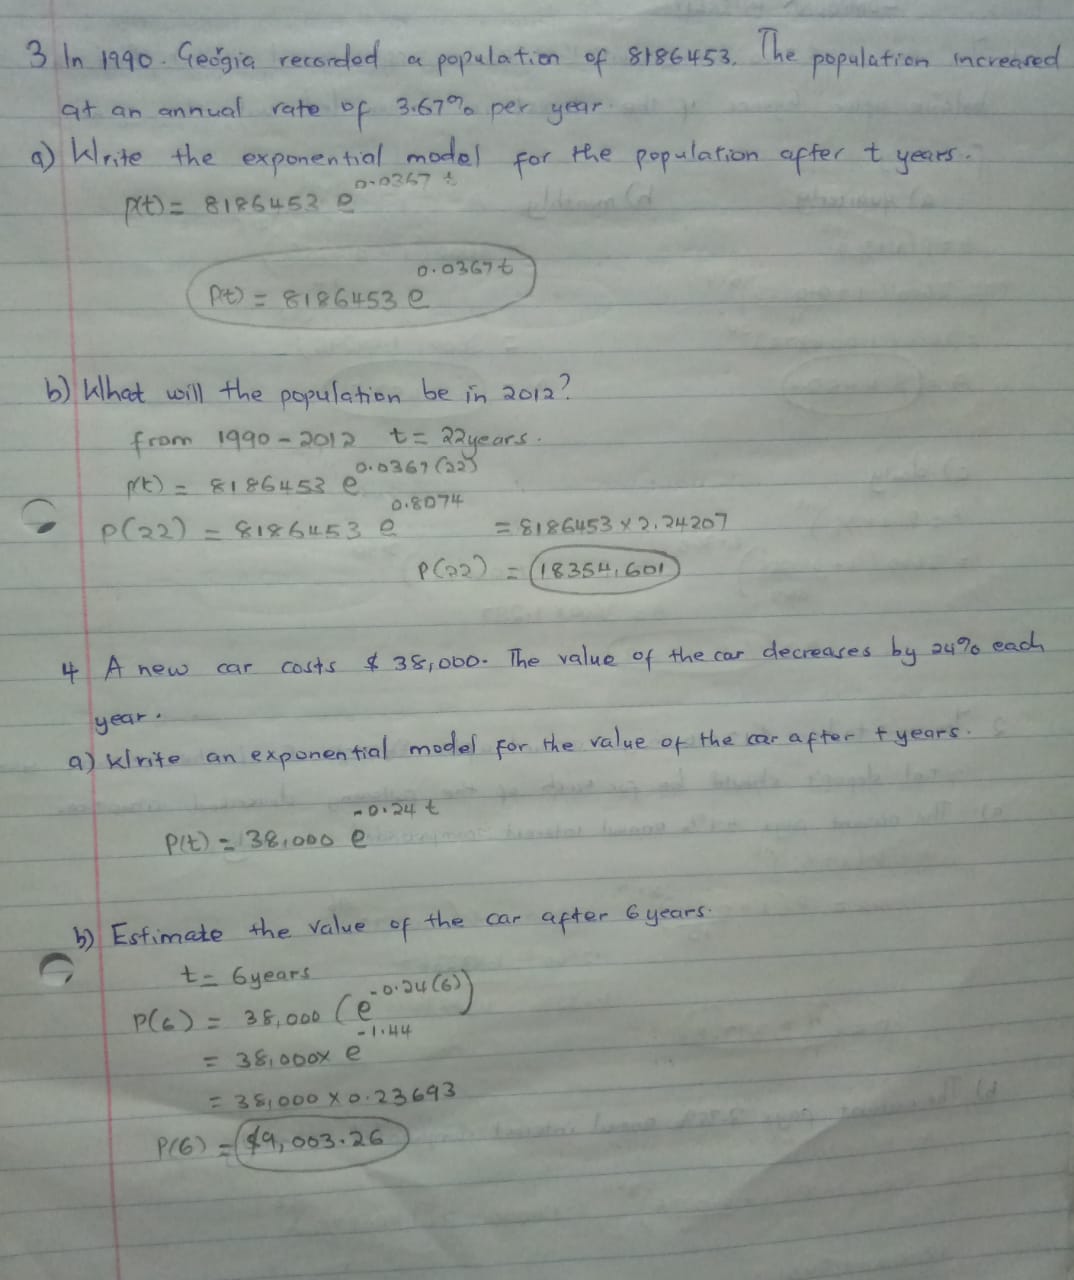 3 In 1990. Geogia recorded a population of 8186453. The population increased
at an annual rate of 3.67% per year.
a) Write the exponential model for the population after t years.
p(t) = 8186453 e^0.0367 t
P(t) = 8186453 e^0.0367t
b) What will the population be in 2012?
from 1990-2012 t= 22years.
p(t) = 8186453 e^0.0367(22)
P(22) = 8186453 e^0.8074 = 8186453 x 2.24207
P(22) = 18354,601
4 A new car costs $ 38,000. The value of the car decreases by 24% each
year.
a) Write an exponential model for the value of the car after t years.
P(t) = 38,000 e^-0.24 t
b) Estimate the value of the car after 6 years.
t= 6years
P(6) = 38,000 (e^-0.24(6))
= 38,000x e^-1.44
= 38,000 x 0.23693
P(6) = $9,003.26